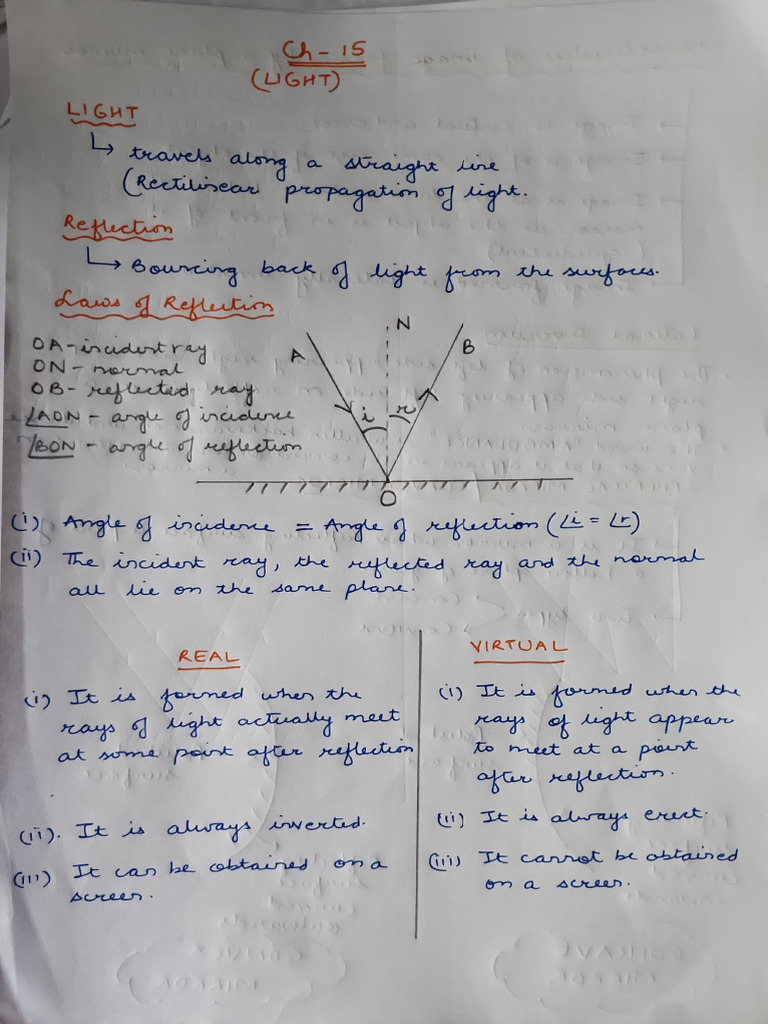 Ch-15
(LIGHT)
LIGHT
↳ travels along a straight line
(Rectilinear propagation of light.
Reflection
↳ Bouncing back of light from the surfaces.
Laws of Reflection
OA-incident ray
ON - normal
OB- reflected ray
∠AON - angle of incidence
∠BON - angle of reflection
A
N
B
i
r
O
(i) Angle of incidence = Angle of reflection (∠i = ∠r)
(ii) The incident ray, the reflected ray and the normal
all lie on the same plane.
REAL
(i) It is formed when the
rays of light actually meet
at some point after reflection
(ii). It is always inverted.
(iii) It can be obtained on a
screen.
VIRTUAL
(i) It is formed when the
rays of light appear
to meet at a point
after reflection.
(ii) It is always erect.
(iii) It cannot be obtained
on a screen.